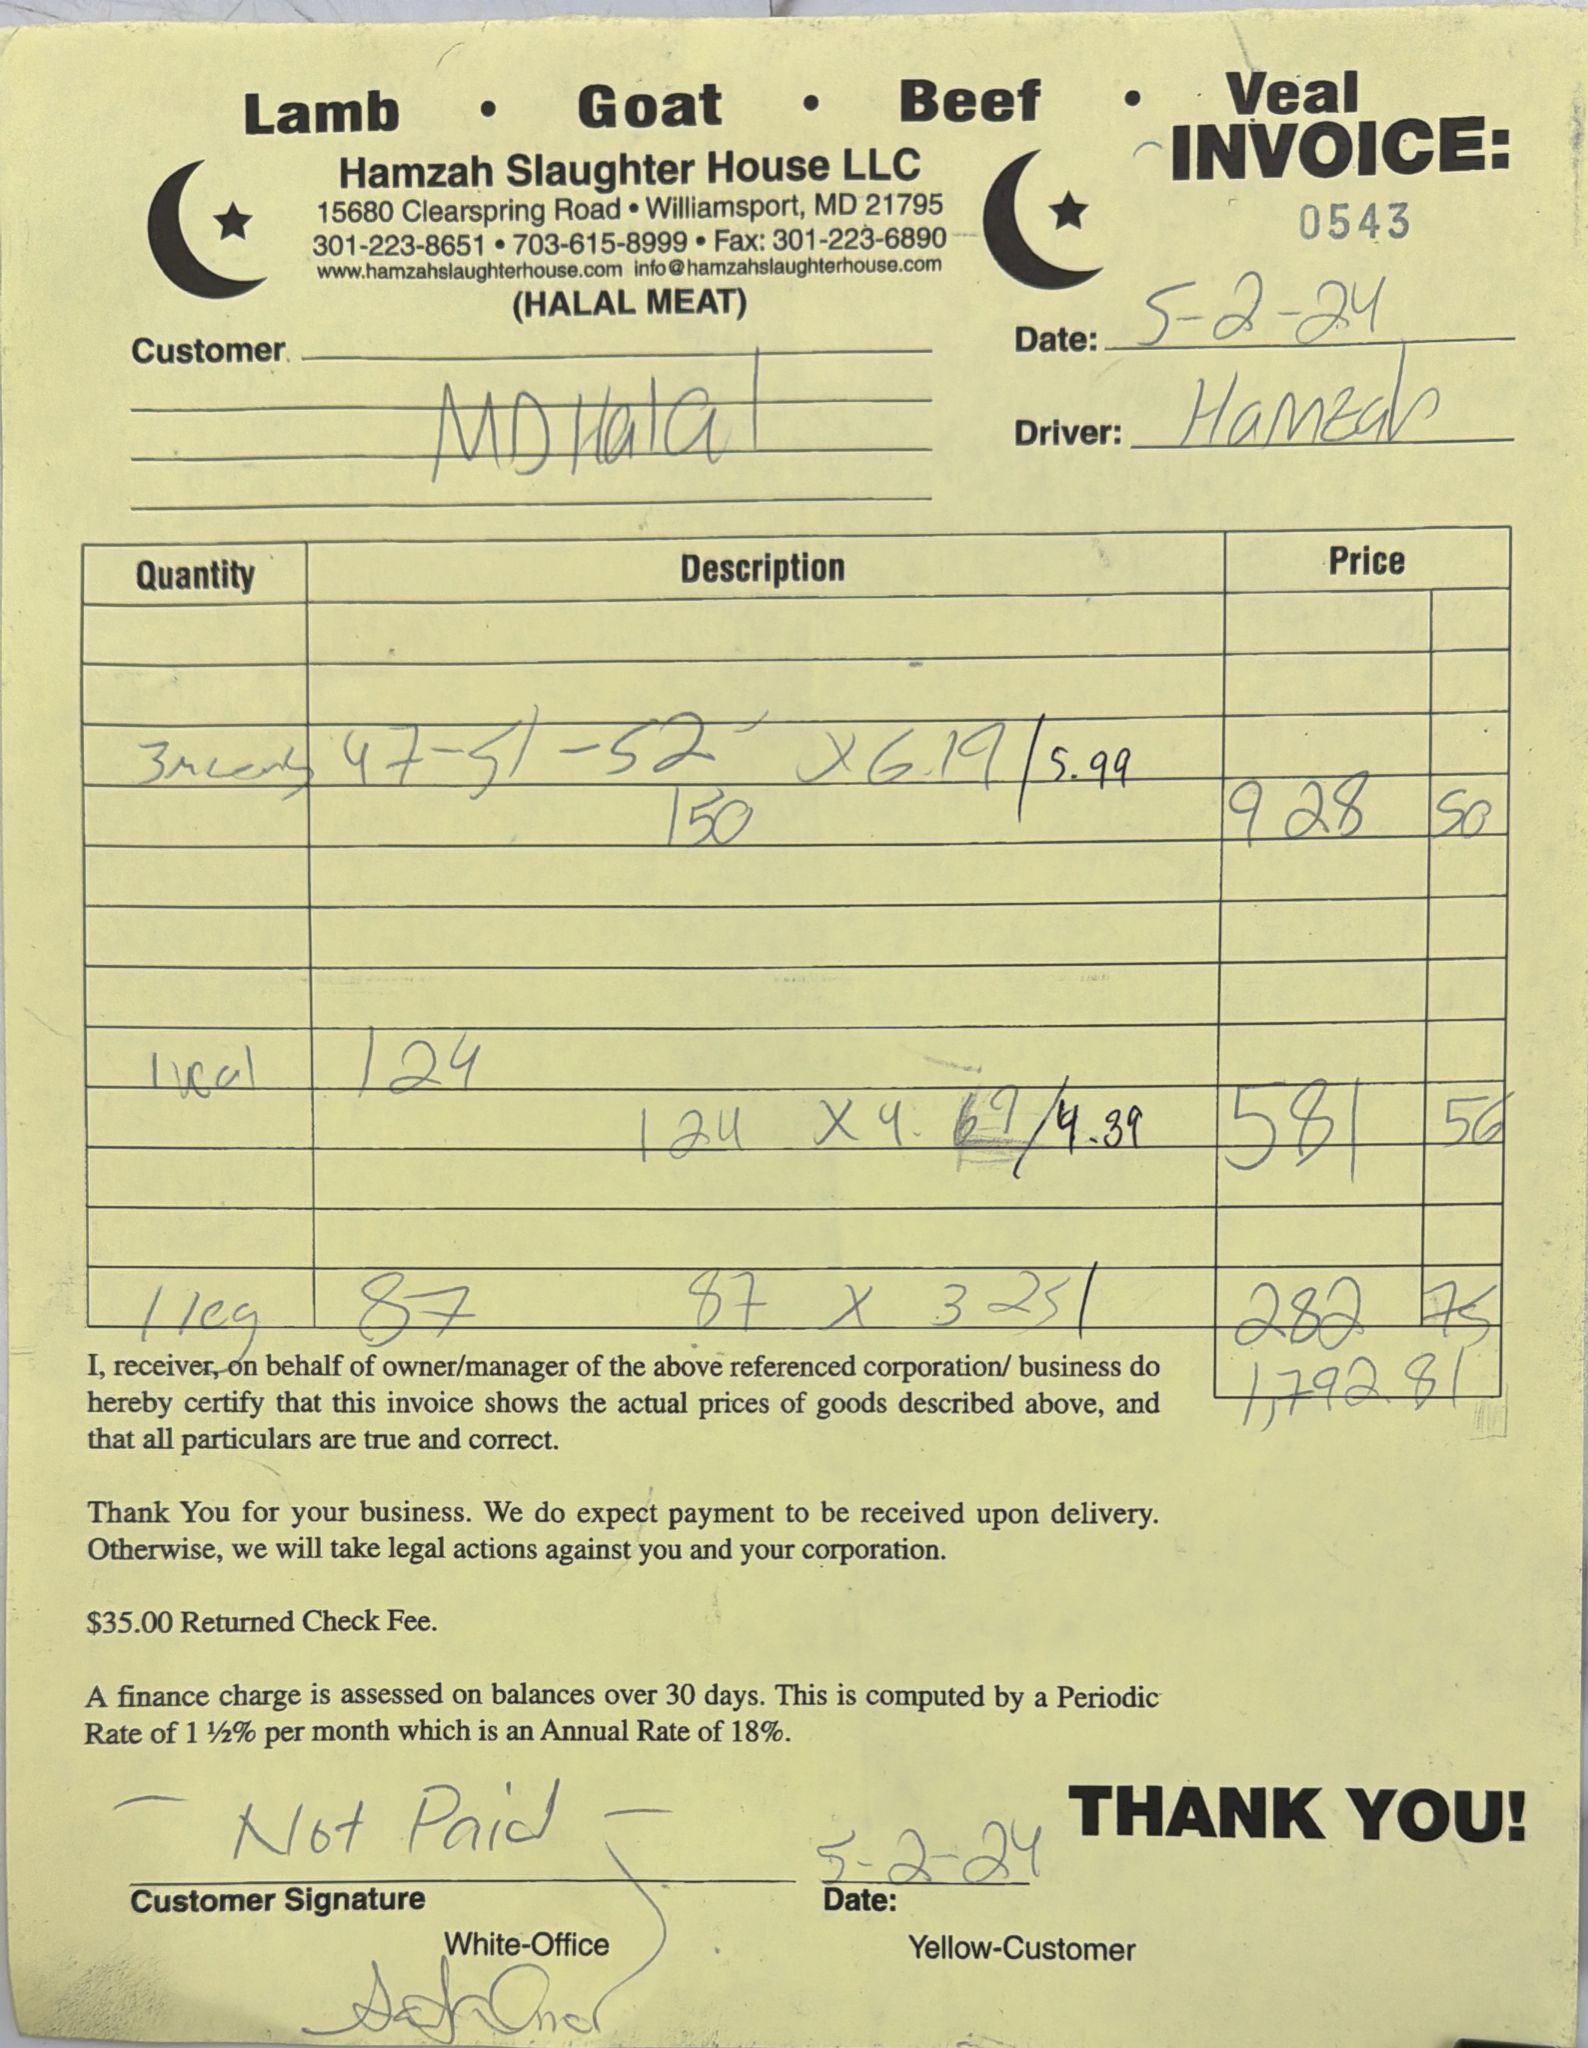 Lamb • Goat • Beef • Veal
INVOICE:
0543
Hamzah Slaughter House LLC
15680 Clearspring Road • Williamsport, MD 21795
301-223-8651 • 703-615-8999 • Fax: 301-223-6890
www.hamzahslaughterhouse.com info@hamzahslaughterhouse.com
(HALAL MEAT)
Date: 5-2-24
Customer
MD Halal
Driver: Hamzah
Quantity Description Price
3 47-51-52 x 6.19/5.99
150 928 50
1 veal 124
124 x 4.69/4.39 581 56
1 leg 87 87 x 3 25/ 282 75
1,792 81
I, receiver, on behalf of owner/manager of the above referenced corporation/ business do
hereby certify that this invoice shows the actual prices of goods described above, and
that all particulars are true and correct.
Thank You for your business. We do expect payment to be received upon delivery.
Otherwise, we will take legal actions against you and your corporation.
$35.00 Returned Check Fee.
A finance charge is assessed on balances over 30 days. This is computed by a Periodic
Rate of 1 ½% per month which is an Annual Rate of 18%.
THANK YOU!
- Not Paid - 5-2-24
Customer Signature Date:
White-Office Yellow-Customer